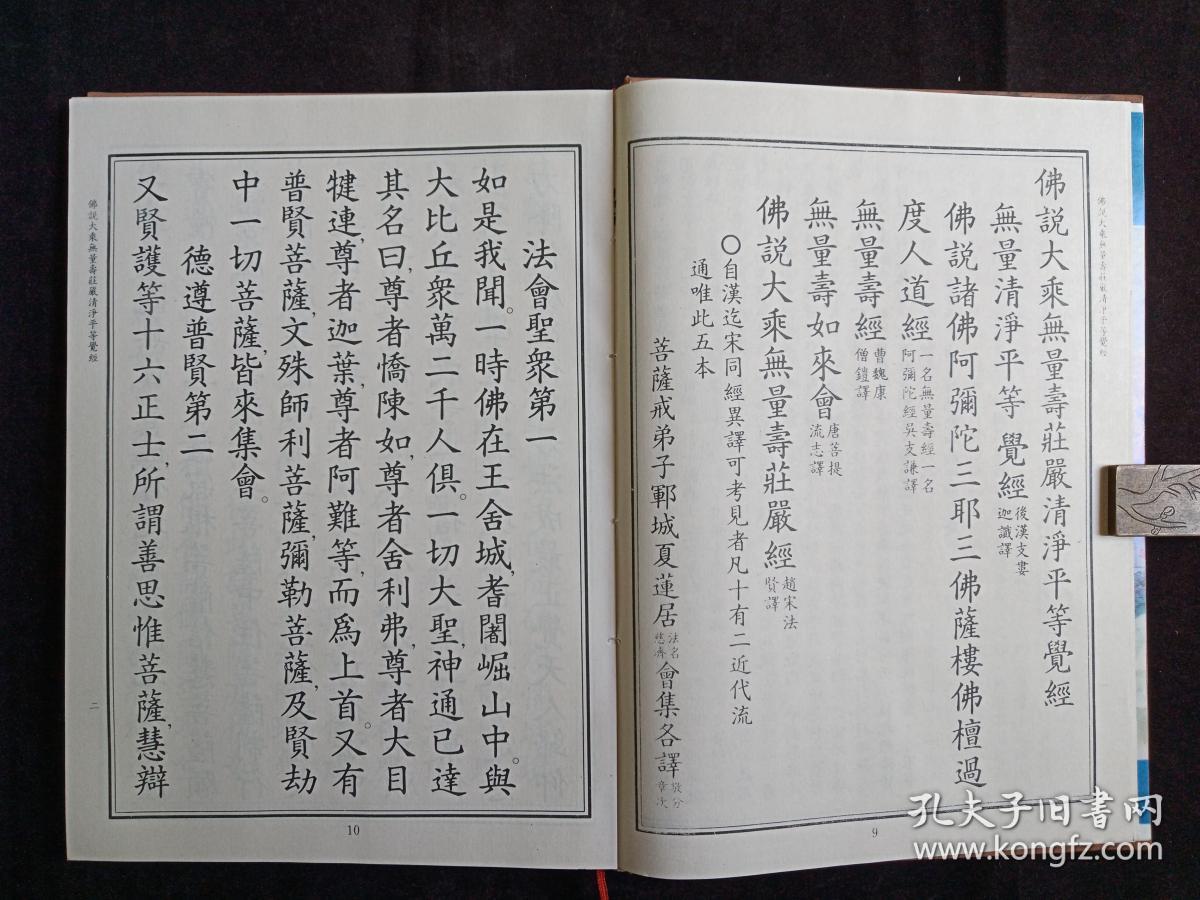 佛說大乘無量壽莊嚴清淨平等覺經
佛說大乘無量壽莊嚴清淨平等覺經
無量清淨平等覺經 後漢支婁迦讖譯
佛說諸佛阿彌陀三耶三佛薩樓佛檀過
度人道經 一名無量壽經一名阿彌陀經吳支謙譯
無量壽經 曹魏康僧鎧譯
無量壽如來會 唐菩提流志譯
佛說大乘無量壽莊嚴經 趙宋法賢譯
○自漢迄宋同經異譯可考見者凡十有二近代流
通唯此五本
菩薩戒弟子鄆城夏蓮居 法名慈濟 會集各譯 敬分章次
9
法會聖衆第一
如是我聞。一時佛在王舍城,耆闍崛山中。與
大比丘衆萬二千人俱。一切大聖,神通已達
其名曰,尊者憍陳如,尊者舍利弗,尊者大目
犍連,尊者迦葉,尊者阿難等,而爲上首。又有
普賢菩薩,文殊師利菩薩,彌勒菩薩,及賢劫
中一切菩薩,皆來集會。
德遵普賢第二
又賢護等十六正士,所謂善思惟菩薩,慧辯
佛說大乘無量壽莊嚴清淨平等覺經
二
10
孔夫子旧书网
www.kongfz.com